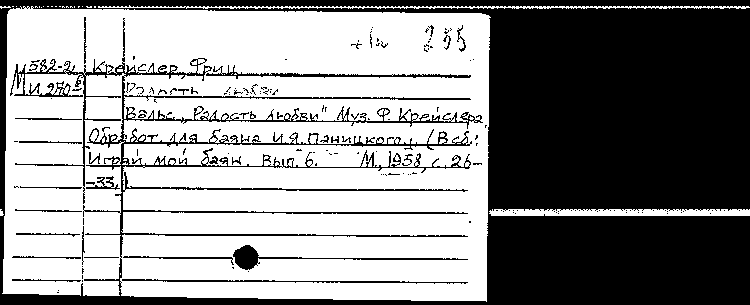 255
М 582-2 Крейслер, Фриц
И 270 Радость любви
Вальс „Радость любви" Муз. Ф. Крейслера
Обработ. для баяна И.Я. Паницкого. (В сб.:
Играй, мой баян. Вып. 6. М., 1958, с. 26-
-33.)